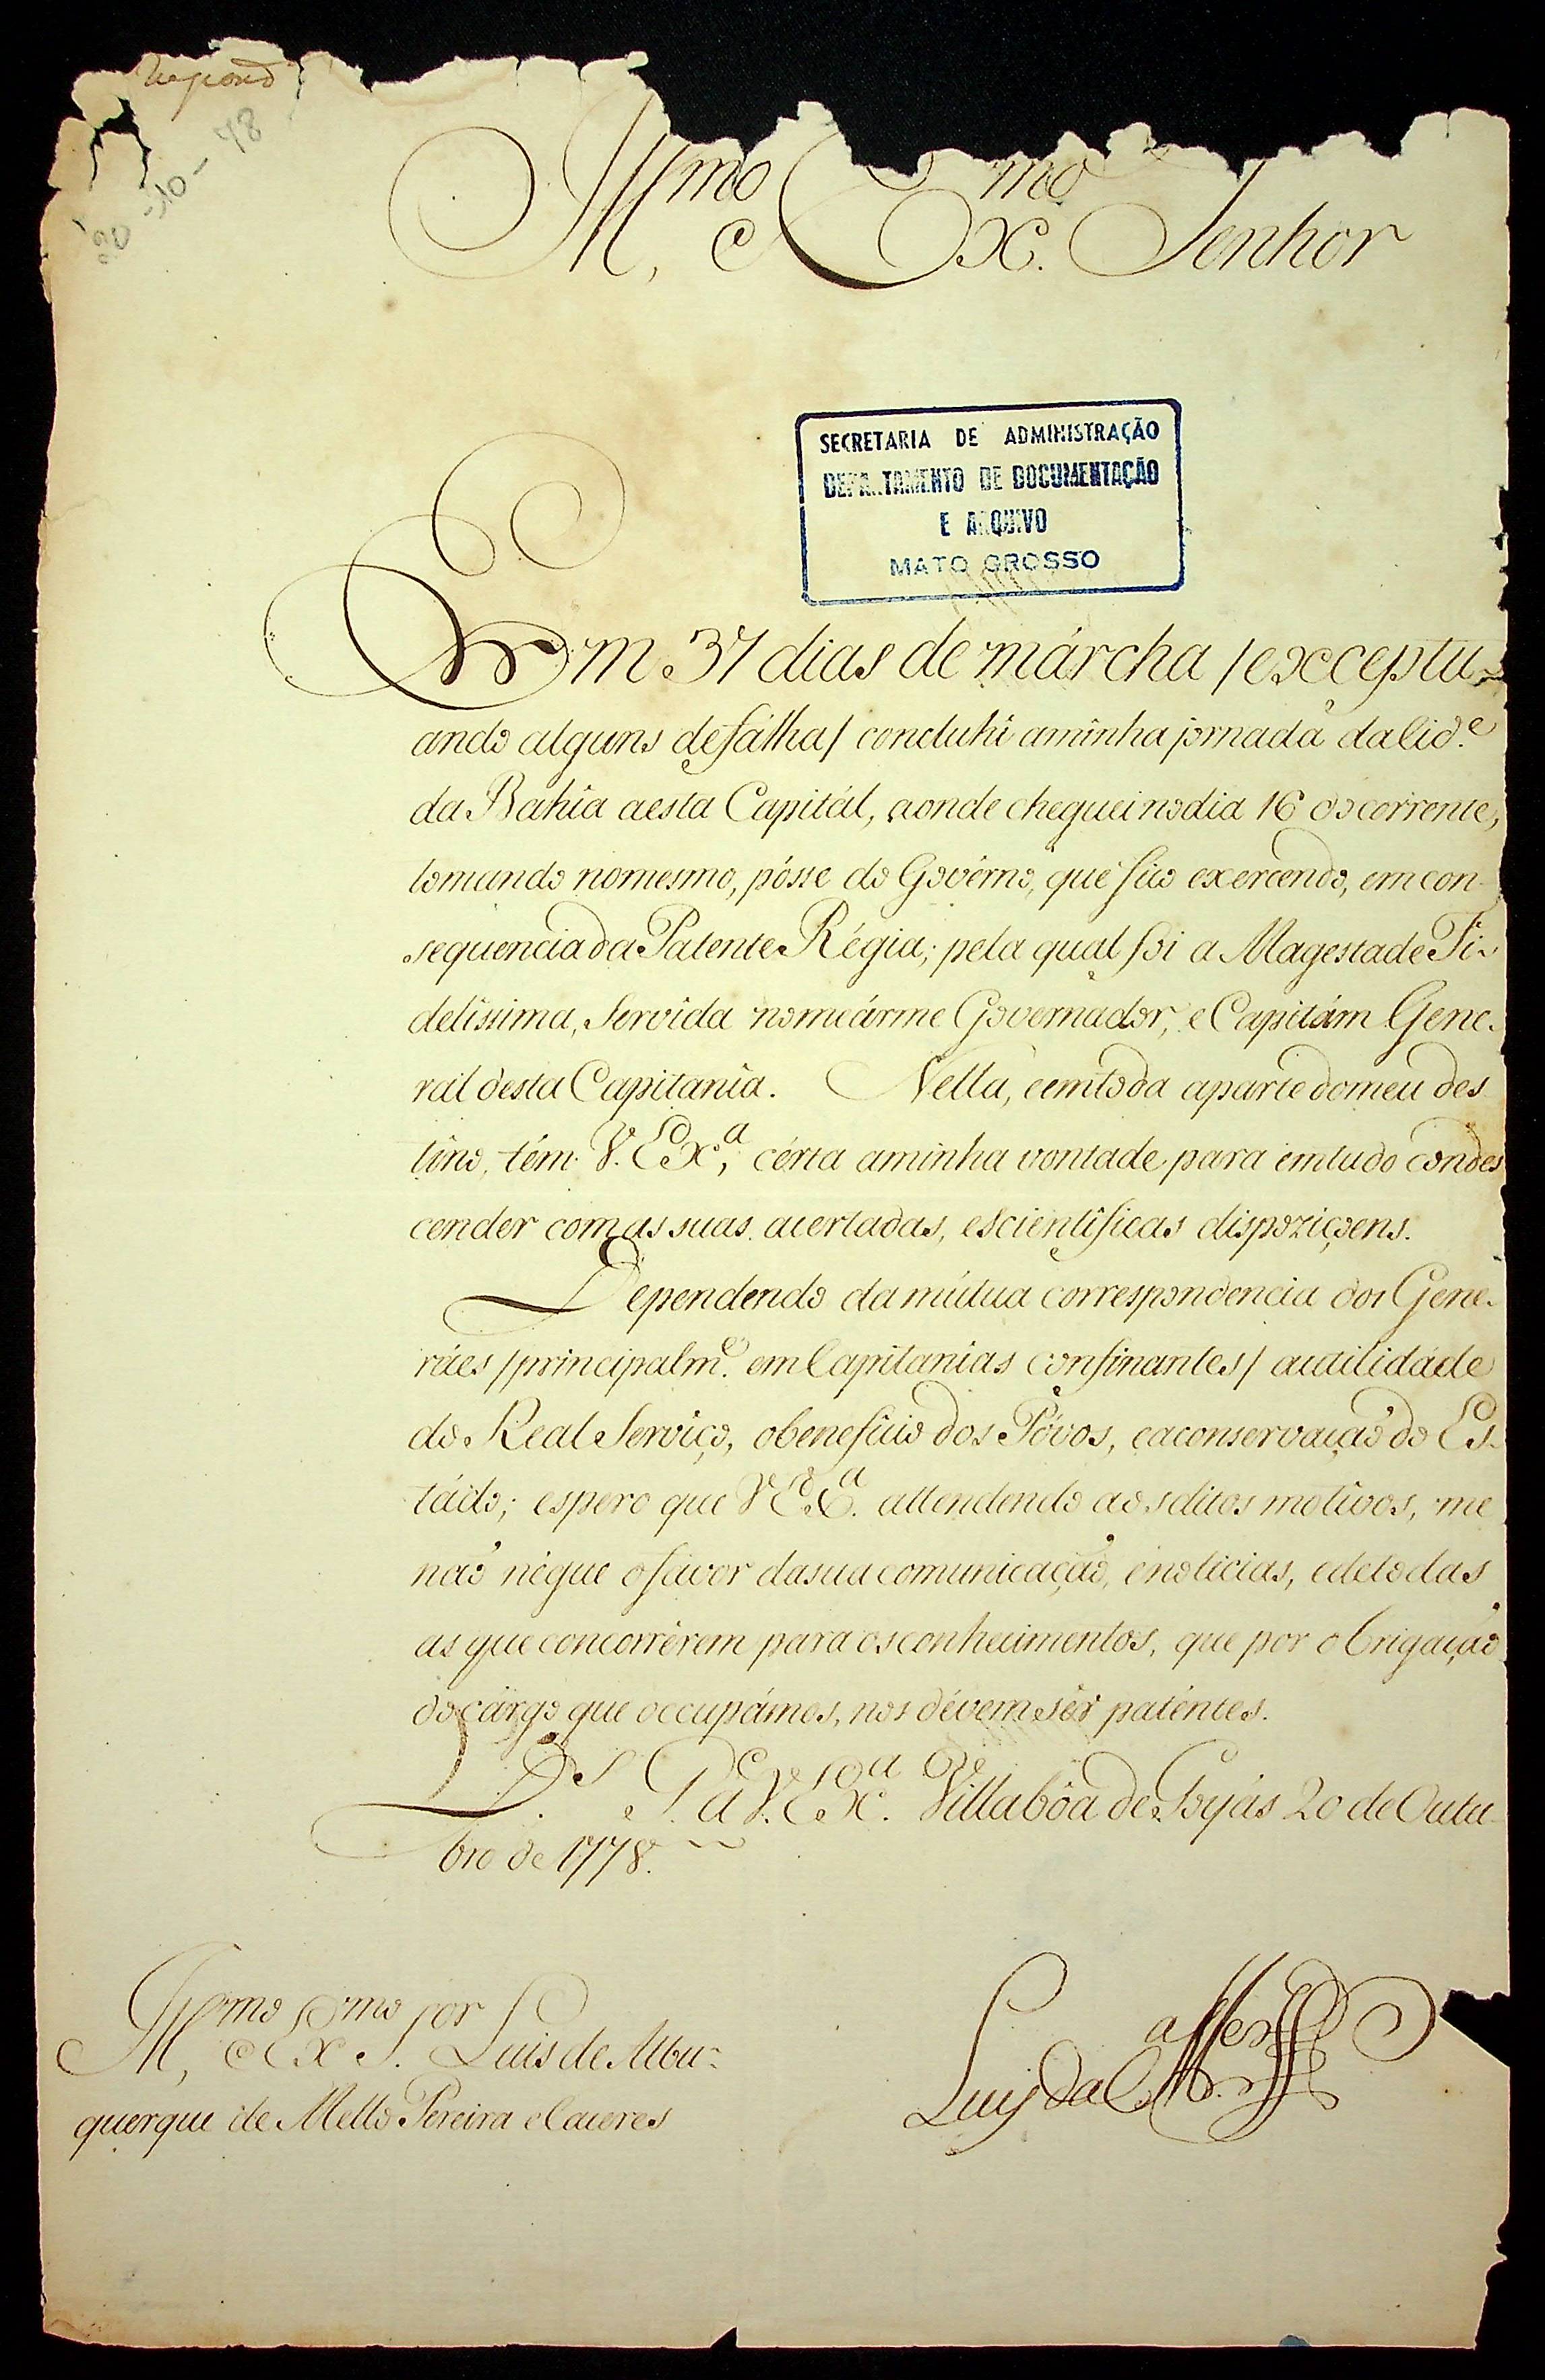 Respond.
20-10-78
Ill.mo e Ex.mo Senhor
SECRETARIA DE ADMINISTRAÇÃO
DEPARTAMENTO DE DOCUMENTAÇÃO
E ARQUIVO
MATO GROSSO
Em 37 dias de márcha /exceptu-
ando alguns defálha/ concluhi aminha jornada da Cid.e
da Bahia aesta Capitál, aonde chequei nodia 16 do corrente,
tomando nomesmo, pósse do Govêrno, que fico exercendo, em con-
sequencia da Patente Régia; pela qual foi a Magestade Fi-
delissima, Servida nomeárme Governador, e Capitám Gene-
ral desta Capitania. Nella, eemtoda aparte domeu des
tino, tém V. Ex.a, cérta aminha vontade para emtudo condes
cender comas suas acertadas, escientificas dispoziçoens.
Dependendo da mútua correspondencia dos Gene-
ráes /principalm.e em Capitanias confinantes/ autilidáde
do Real Serviço, obeneficio dos Póvos, eaconservação do Es-
tádo; espero que V. E.a attendendo aos ditos motivos, me
não négue ofavor dasua comunicação, enoticias, edetodas
as que concorrêrem para osconhecimentos, que por obrigação
docárgo que occupámos, nos dévem sêr paténtes.
D.s G.e a V. Ex.a Villabôa de Goyás 20 de Outu
bro de 1778.
Ill.mo e Ex.mo S.or Luis de Albu-
querque de Mello Pereira eCaceres
Luis da C.